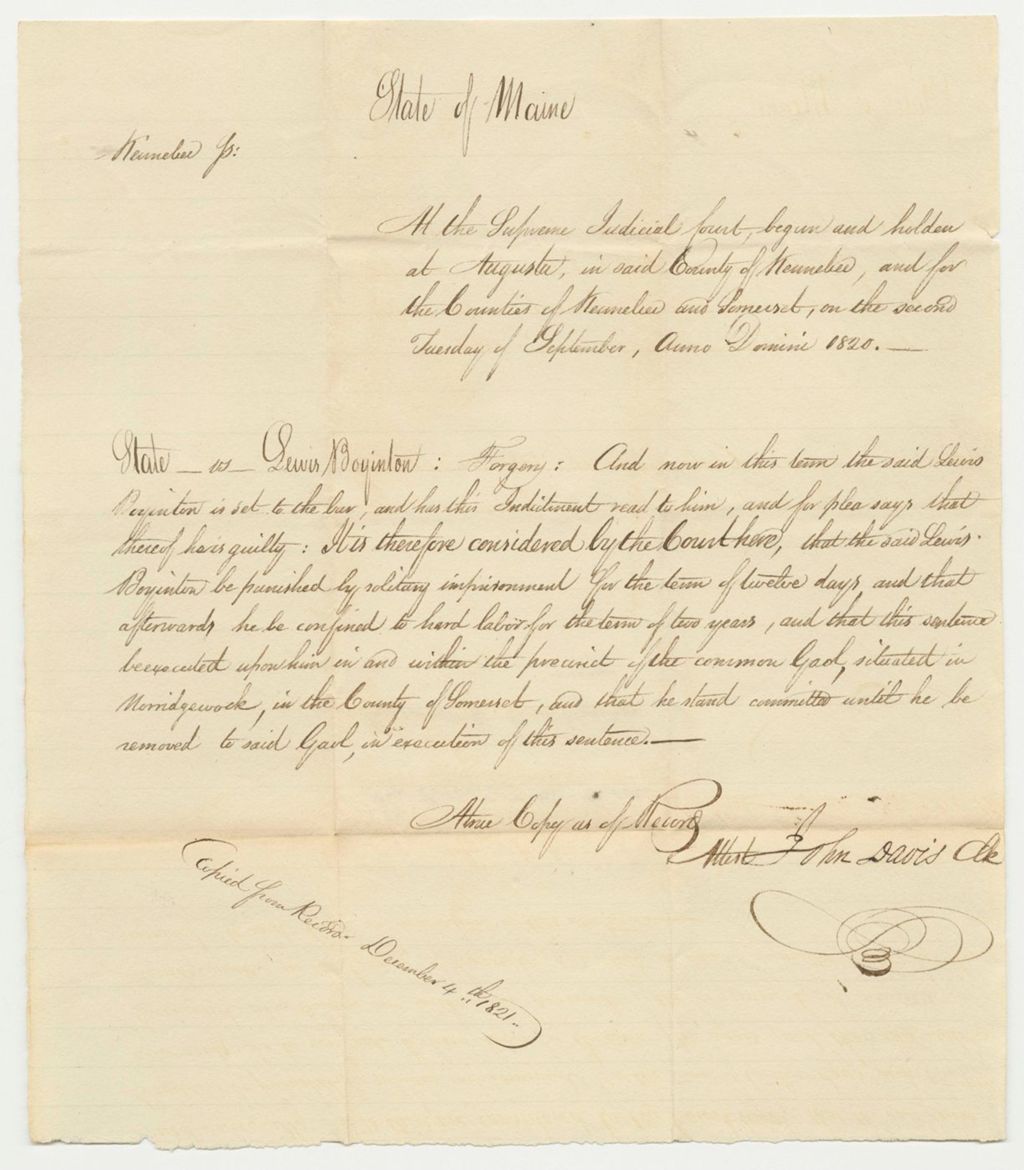 State of Maine
Kennebec Ss:
At the Supreme Judicial Court, begun and holden
at Augusta, in said County of Kennebec, and for
the Counties of Kennebec and Somerset, on the second
Tuesday of September, Anno Domini 1820. —
State — vs — Lewis Boyinton : Forgery : And now in this term the said Lewis
Boyinton is set to the bar, and has this Indictment read to him, and for plea says that
thereof he is guilty : It is therefore considered by the Court here, that the said Lewis
Boyinton be punished by solitary imprisonment for the term of twelve days, and that
afterwards he be confined to hard labor for the term of two years, and that this sentence
be executed upon him in and within the precinct of the common Gaol, situated in
Norridgewock, in the County of Somerset, and that he stand committed until he be
removed to said Gaol, in execution of this sentence. —
A true Copy as of Record
Attest John Davis Clk
Copied from Record
December 4th 1821